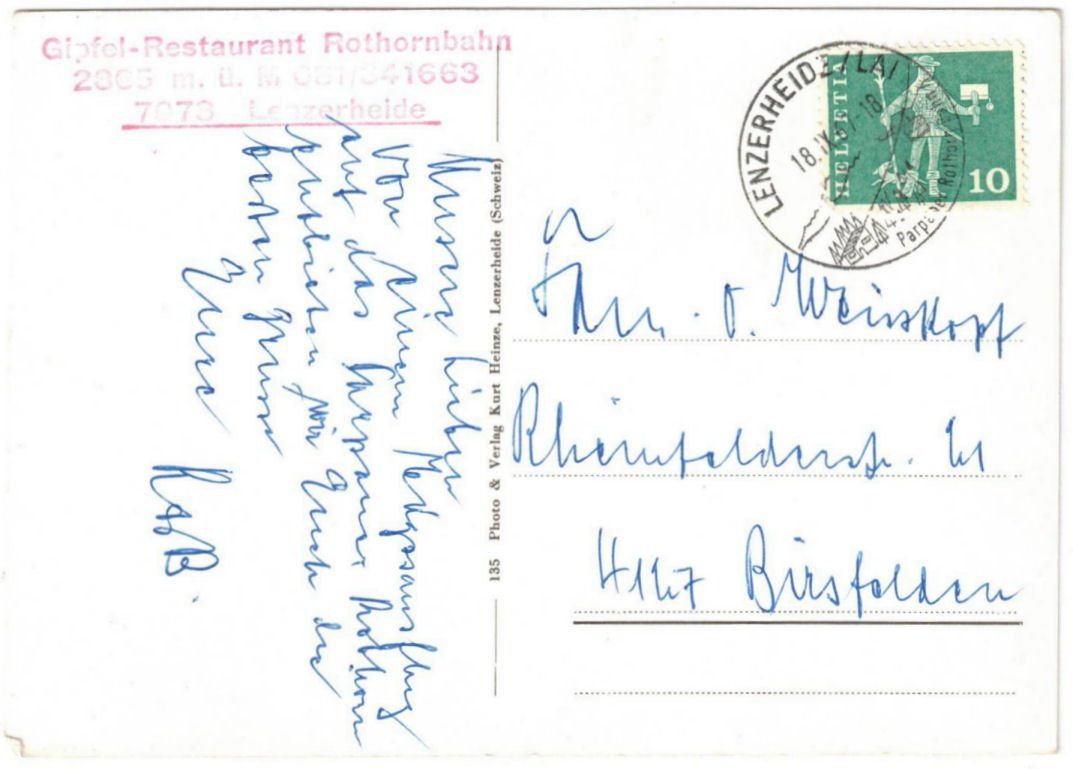 Gipfel-Restaurant Rothornbahn
2865 m. ü. M 081/341663
7078 Lenzerheide
LENZERHEIDE/LAI
18.IX.67-18
Parpaner Rothorn
HELVETIA
10
Unsere Lieben
Von einem
auf das Parpaner Rothorn
entbieten wir Euch die
besten Grüsse
Eure
R+B.
135 Photo & Verlag Kurt Heinze, Lenzerheide (Schweiz)
Fam. O. Weisskopf
Rheinfelderstr.
4127 Birsfelden